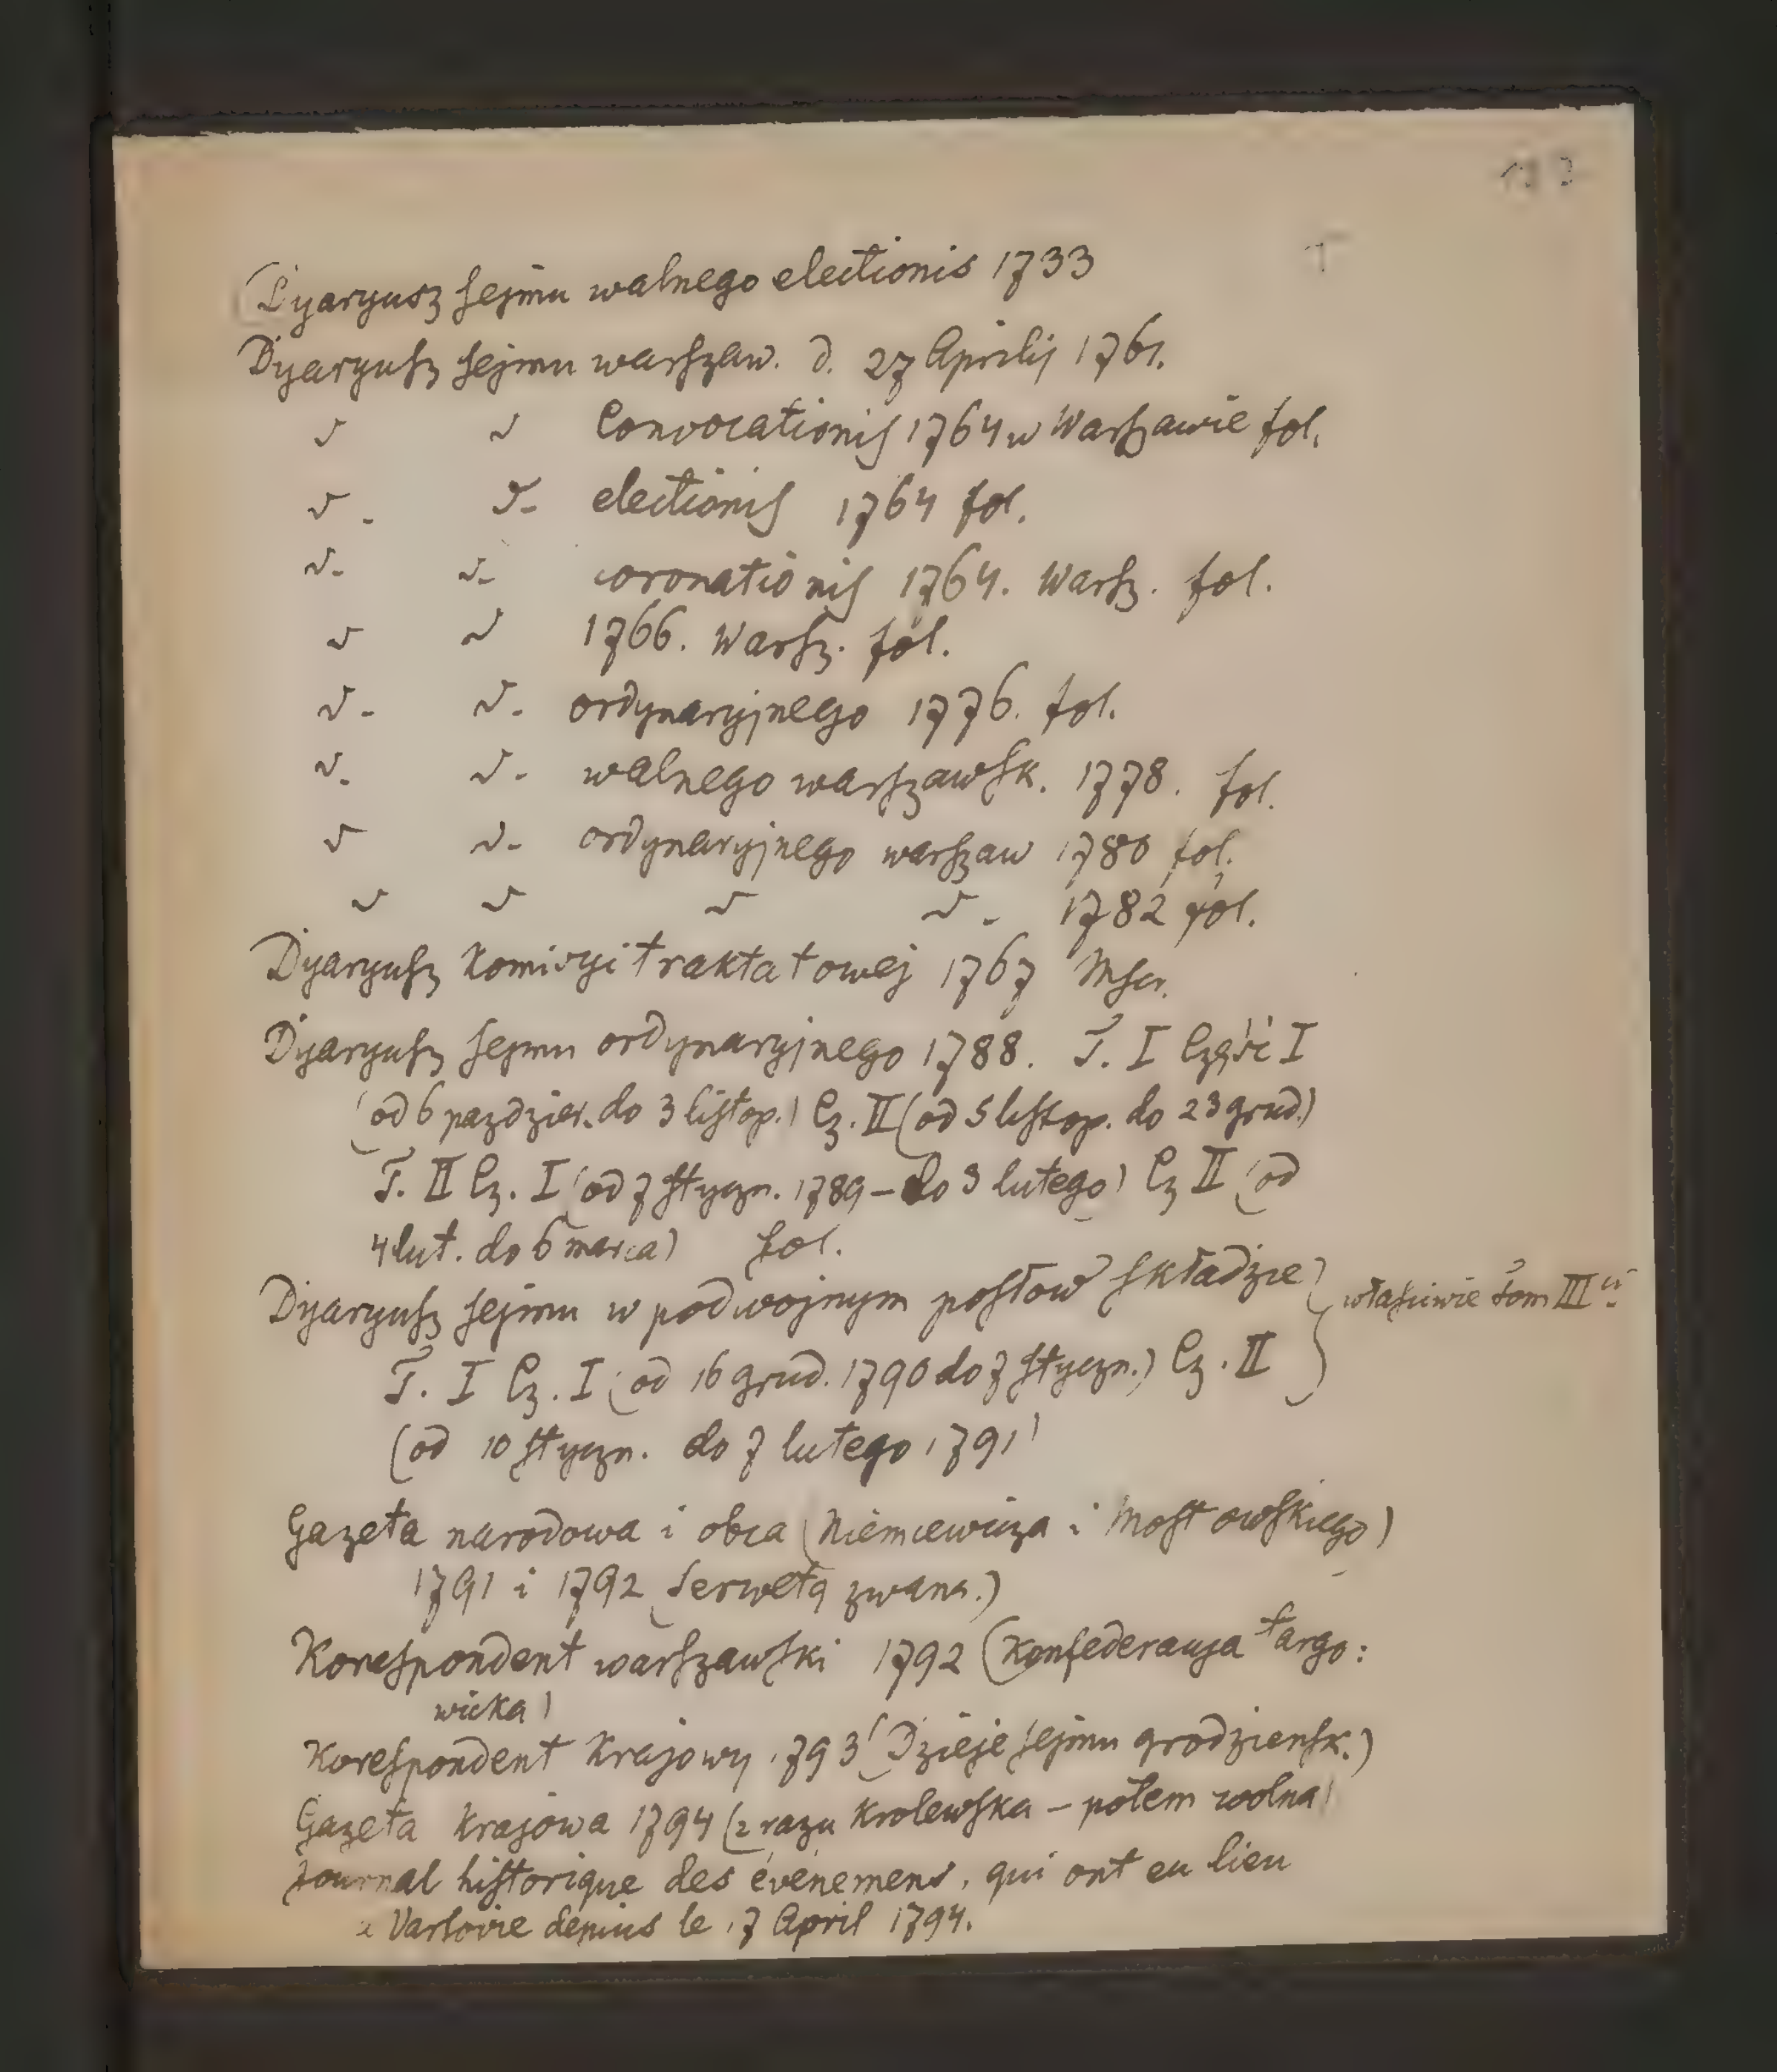 Dyaryusz sejmu walnego electionis 1733
Dyaryusz sejmu warszaw. d. 27 Aprilis 1761.
" " Convocationis 1764 w Warszawie fol.
" " electionis 1764 fol.
" " coronationis 1764. Warsz. fol.
" " 1766. Warsz. fol.
" " ordynaryjnego 1776. fol.
" " walnego warszawsk. 1778. fol.
" " ordynaryjnego warszaw 1780 fol.
" " " " 1782 fol.
Dyaryusz Komisyi traktatowej 1767 Mscr.
Dyaryusz sejmu ordynaryjnego 1788. T. I Część I
(od 6 pazdzier. do 3 listop.) Cz. II (od 5 listop. do 23 grud.)
T. II Cz. I (od 7 styczn. 1789 – do 3 lutego) Cz II (od
4 lut. do 6 marca) fol.
Dyaryusz sejmu w podwojnym posłow składzie } właściwie tom III
T. I Cz. I (od 16 grud. 1790 do 7 styczn.) Cz. II
(od 10 styczn. do 7 lutego 1791)
Gazeta narodowa i obca (Niemcewicza i Mostowskiego)
1791 i 1792 (Serwetą zwana.)
Korespondent warszawski 1792 (Konfederacyja targo:
wicka)
Korespondent Krajowy 1793 (Dzieje sejmu grodziensk.)
Gazeta Krajowa 1794 (z razu Krolewska – potem wolna)
Journal historique des événemens, qui ont eu lieu
a Varsovie depuis le 17 April 1794.